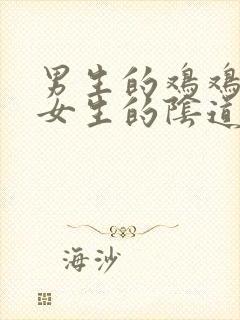 男生的鸡鸡
女生的陰道
海沙